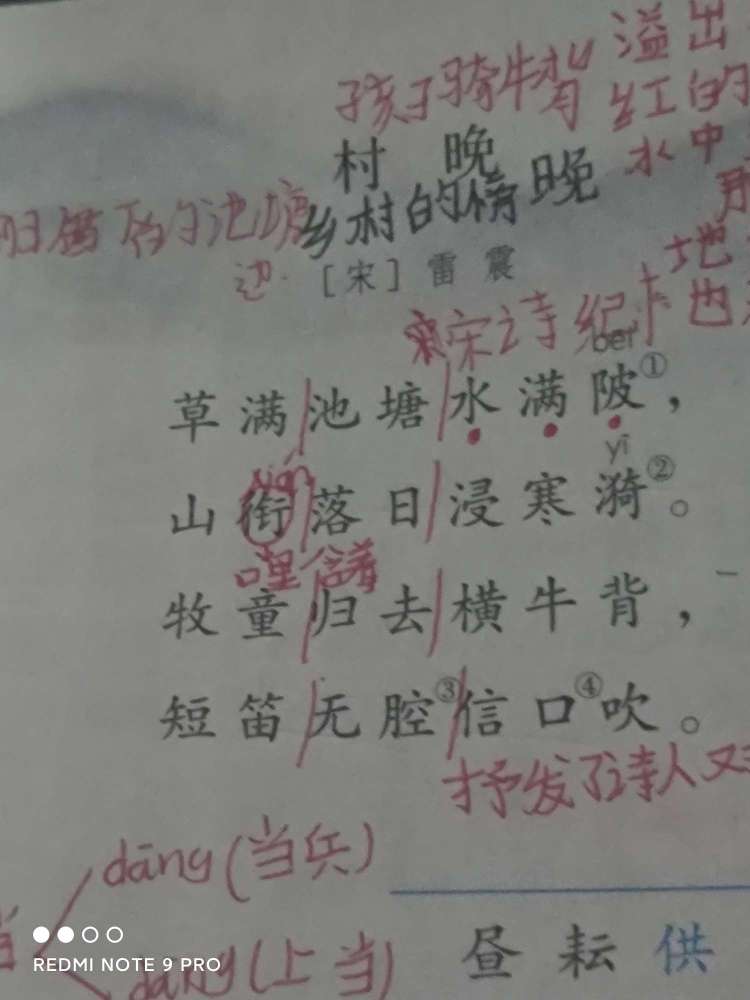 孩子骑牛背
溢出
红的
水中
村 晚
乡村的傍晚
的池塘
边
地
[宋] 雷 震
宋诗 纪 也
草满池塘水满陂①，
yǐ
山衔落日浸寒漪②。
嘴 含着
牧童归去横牛背，
短笛无腔③信口④吹。
抒发了诗人又
dāng(当兵)
dàng(上当)
昼 耘 供
REDMI NOTE 9 PRO